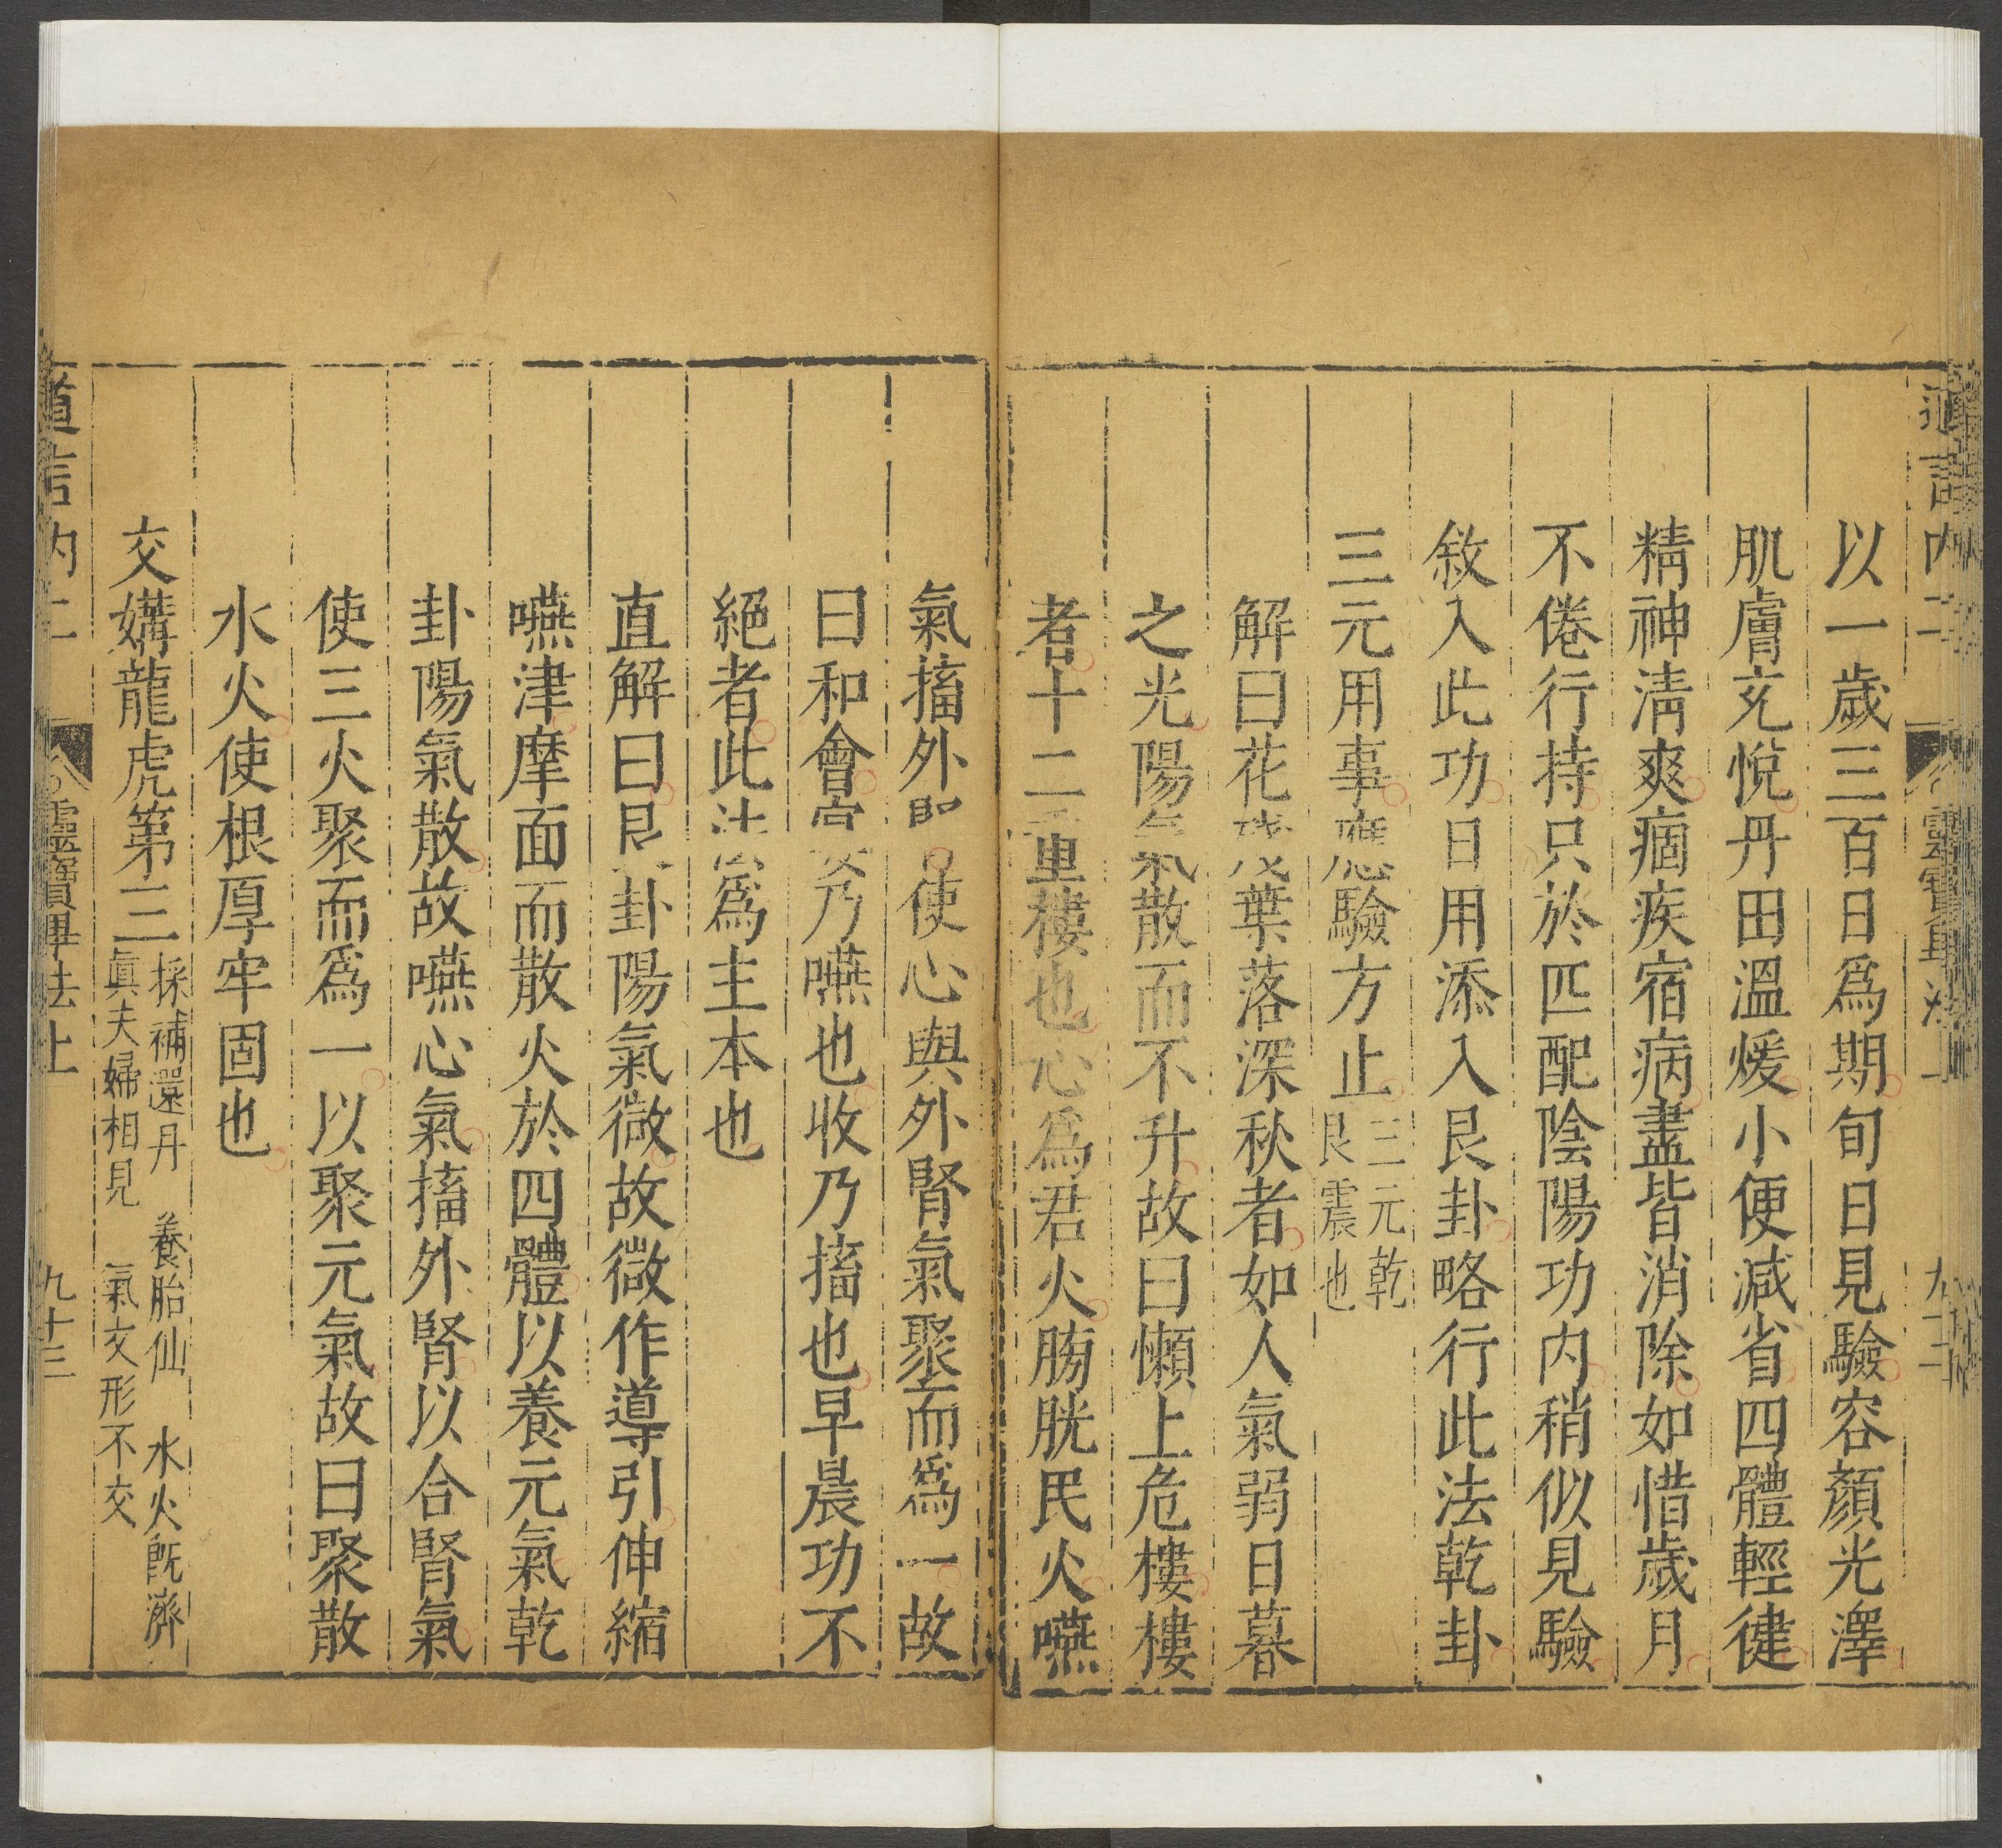 道言内二
靈寶畢法上
九十二
以一歲三百日爲期旬日見驗容顏光澤
肌膚充悅丹田溫煖小便减省四體輕健
精神淸爽痼疾宿病盡皆消除如惜歲月
不倦行持只於匹配陰陽功内稍似見驗
敘入此功日用添入艮卦略行此法乾卦
三元用事應驗方止三元乾
艮震也
解曰花殘葉落深秋者如人氣弱日暮
之光陽氣散而不升故曰懶上危樓樓
者十二重樓也心爲君火膀胱民火嚥
氣搐外腎使心與外腎氣聚而爲一故
曰和會
乃嚥也收乃搐也早晨功不
絕者此法爲主本也
直解曰艮卦陽氣微故微作導引伸縮
嚥津摩面而散火於四體以養元氣乾
卦陽氣散故嚥心氣搐外腎以合腎氣
使三火聚而爲一以聚元氣故曰聚散
水火使根厚牢固也
交媾龍虎第三採補還丹 養胎仙 水火既濟
眞夫婦相見 氣交形不交
道言内二
靈寶畢法上
九十三